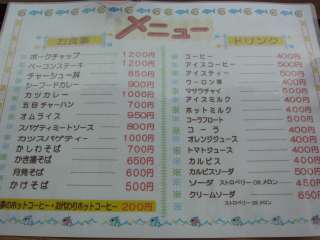 メニュー
お食事
ポークチャップ 1200円
ベーコンステーキ 1200円
チャーシュー丼 850円
シーフードカレー 900円
カツカレー 1000円
五目チャーハン 700円
オムライス 950円
スパゲティミートソース 800円
カツスパゲティー 1000円
かしわそば 700円
かき揚そば 650円
月見そば 600円
かけそば 500円
ホットコーヒー・お代わりホットコーヒー 200円
ドリンク
コーヒー 400円
アイスコーヒー 500円
アイスティー 500円
ウーロン茶 400円
マサラチャイ 500円
アイスミルク 400円
ホットミルク 400円
コーラフロート 500円
コーラ 400円
オレンジジュース 400円
トマトジュース 400円
カルピス 400円
カルピスソーダ 500円
ソーダ ストロベリー OR メロン 450円
クリームソーダ 650円
ストロベリー OR メロン